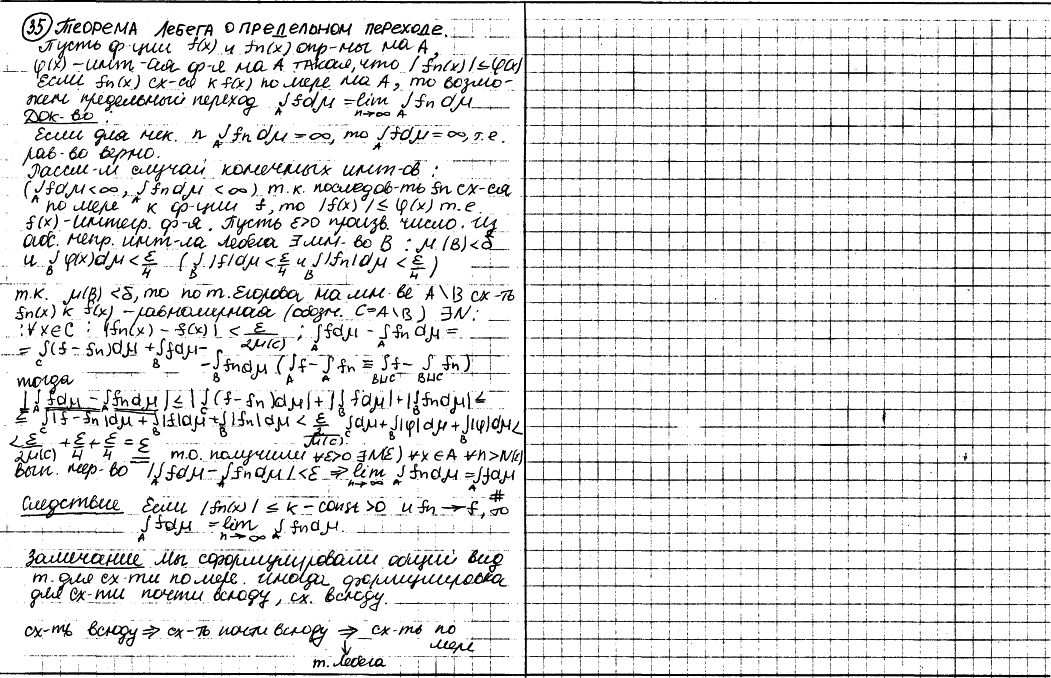 35 Теорема Лебега о предельном переходе.
Пусть ф-ции f(x) и fn(x) опр-ны на A,
φ(x)-инт-ая ф-я на A такая, что |fn(x)| ≤ φ(x)
Если fn(x) сх-ся к f(x) по мере на A, то возмо-
жен предельный переход ∫_A fdμ = lim_{n→∞} ∫_A fn dμ
Док-во:
Если для нек. n ∫_A fn dμ = ∞, то ∫_A fdμ = ∞, т.е.
рав-во верно.
Рассм-м случай конечных инт-ов:
(∫_A fdμ < ∞, ∫_A fn dμ < ∞) т.к. последов-ть fn сх-ся
по мере к ф-ции f, то |f(x)| ≤ φ(x) т.е.
f(x)-интегр. ф-я. Пусть ε>0 произв. число. Из
абс. непр. инт-ла Лебега ∃ мн-во B : μ(B) < δ
и ∫_B φ(x)dμ < ε/4 (∫_B |f|dμ < ε/4 и ∫_B |fn|dμ < ε/4)
т.к. μ(B) < δ, то по т. Егорова на мн-ве A\B сх-ть
fn(x) к f(x) - равномерная (обозн. C=A\B) ∃N:
: ∀x∈C : |fn(x) - f(x)| < ε/2μ(c) ; ∫_A fdμ - ∫_A fn dμ =
= ∫_C (f - fn)dμ + ∫_B fdμ -
- ∫_B fn dμ (∫_A f - ∫_A fn ≡ ∫_{B⊔C} f - ∫_{B⊔C} fn)
тогда
|∫_A fdμ - ∫_A fn dμ| ≤ |∫_C (f-fn)dμ| + |∫_B fdμ| + |∫_B fn dμ| ≤
≤ ∫_C |f-fn|dμ + ∫_B |f|dμ + ∫_B |fn|dμ < ε/2μ(c) ∫_C dμ + ∫_B |φ|dμ + ∫_B |φ|dμ <
< ε/2μ(c) + ε/4 + ε/4 = ε т.о. получили ∀ε>0 ∃N(ε) ∀x∈A ∀n>N(ε)
вып. нер-во |∫_A fdμ - ∫_A fn dμ| < ε ⇒ lim_{n→∞} ∫_A fn dμ = ∫_A fdμ
#
Следствие Если |fn(x)| ≤ k - const > 0 и fn → f, то
∫_A fdμ = lim_{n→∞} ∫_A fn dμ.
Замечание Мы сформулировали общий вид
т. для сх-ти по мере. Иногда формулировка
для сх-ти почти всюду, сх. всюду.
сх-ть всюду ⇒ сх-ть почти всюду ⇒ сх-ть по
мере
↓
т. Лебега